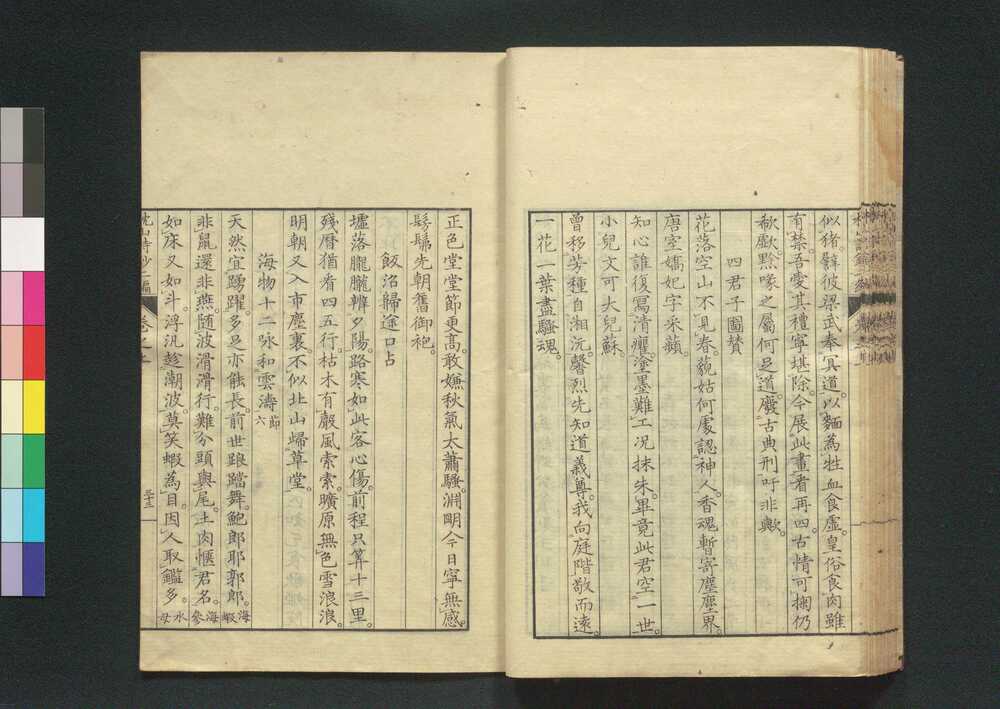 似猪。髀彼梁武奉冥道。以麵為牲血食虛。皇俗食肉雖
有禁吾愛其禮寧堪除。今展此畫者再四。古情可掬仍
欷歔。黙喙之屬何足道。廢古典刑吁非歟。
四君子圖賛
花落空山不見春。藐姑何處認神人。香魂暫寄塵塵界。
唐室嬌妃字釆蘋。
知心誰復寫清癯。塗墨難工况抹朱。畢竟此君空一世。
小兒文可大兒蘇。
曾移芳種自湘沅。馨烈先知道義尊。我向庭階敬而遠。
一花一葉盡騷魂。
正色堂堂節更髙。敢嫌秋氣太蕭騷。淵明今日寧無感。
髣髴先朝舊御袍。
飯沼歸途口占
墟落朧朧辨夕陽。路寒如此客心傷。前程只算十三里。
殘曆猶看四五行。枯木有嚴風索索。曠原無色雪浪浪。
明朝又入市塵裏。不似北山歸草堂。
海物十二咏和雲濤 六節
天然宜踴躍。多足亦能長。前世踉蹡舞。鮑郎耶郭郎。海蝦
非鼠還非燕。随波滑滑行。難分頭與尾。土肉愜君名。海參
如床又如斗。浮汎趁潮波。莫笑蝦為目。因人取鑑多。水母
枕山詩鈔二編 卷之上 三十三